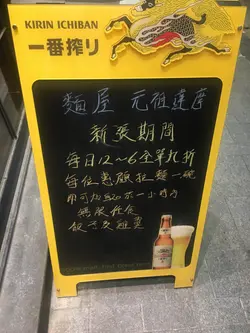 KIRIN ICHIBAN
一番搾り
麵屋 元祖達摩
新張期間
每日12~6全單九折
每位惠顧拉麵一碗
用可加$20來一小時內
無限任食
餃子及雞翼